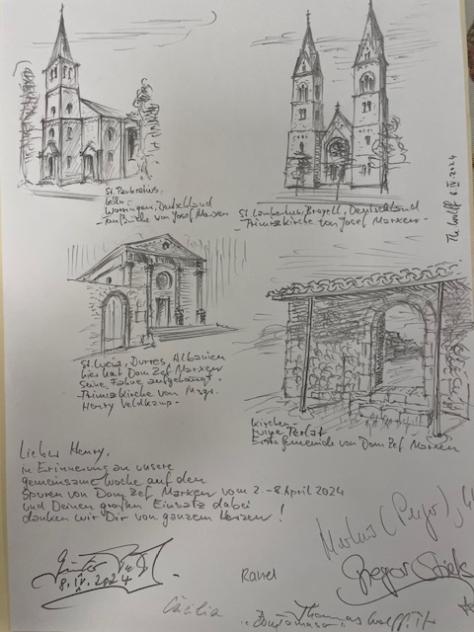 St. Pankratius,
Köln-
Worringen, Deutschland
- Taufkirche von Josef Marxen
St. Lambertus, Breyell, Deutschland
- Primizkirche von Josef Marxen -
Th. Wolff 8.IV.2024
St. Lucia, Durres, Albanien
hier hat Dom Zef Marxen
seine
- Primizkirche von Msgr.
Henry Veldkamp -
Kirchen-
ruine Perlat
Erste Gemeinde von Dom Zef Marxen
Lieber Henry,
in Erinnerung an unsere
gemeinsame Woche auf den
Spuren von Dom Zef Marxen vom 2.-8. April 2024
und Deinen großen Einsatz dabei
danken wir Dir von ganzem Herzen!
Markus
8.IV.2024
Gregor
Cäcilia
Thomas Wolff